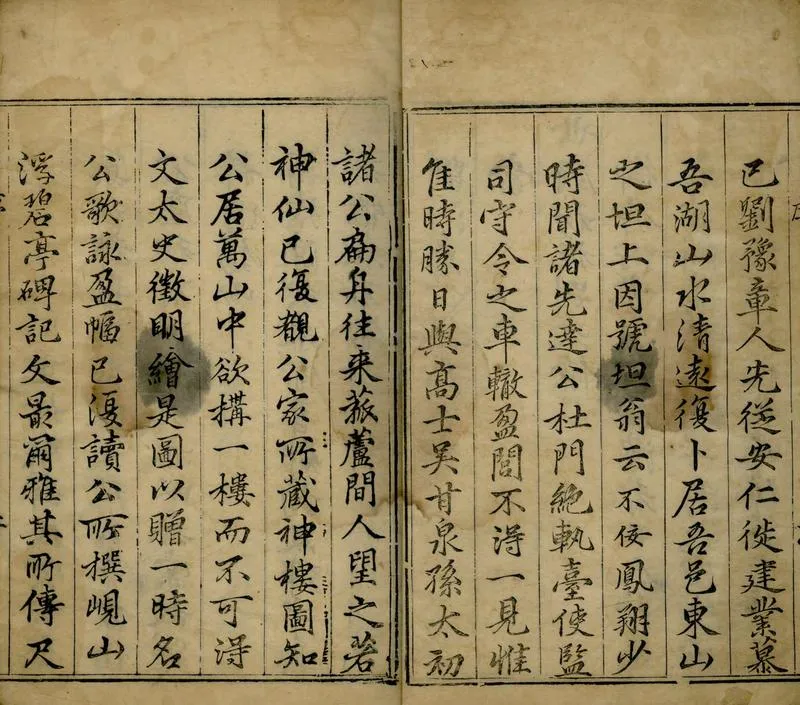 已劉豫章人先從安仁徙建業慕
吾湖山水清遠復卜居吾邑東山
之坦上因號坦翁云不佞鳳翔少
時聞諸先達公杜門絕軌臺使監
司守令之車轍盈閭不得一見惟
隹時勝日與高士吴甘泉孫太初
諸公扁舟往来菰蘆間人望之若
神仙已復覩公家所藏神樓圖知
公居萬山中欲搆一樓而不可得
文太史徴明繪是圖以贈一時名
公歌詠盈幅已復讀公所撰峴山
浮碧亭碑記文最爾雅其所傳尺